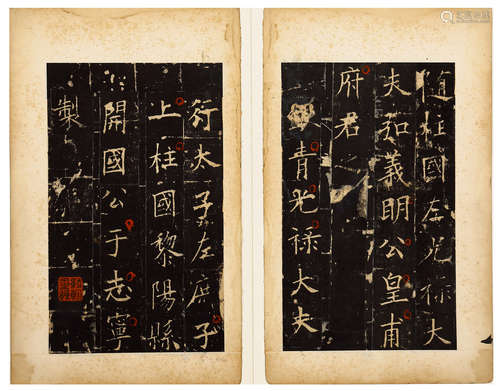 随柱國左光祿大
夫弘義明公皇甫
府君
青光祿大夫
行太子左庶子
上柱國黎陽縣
開國公于志寧
製